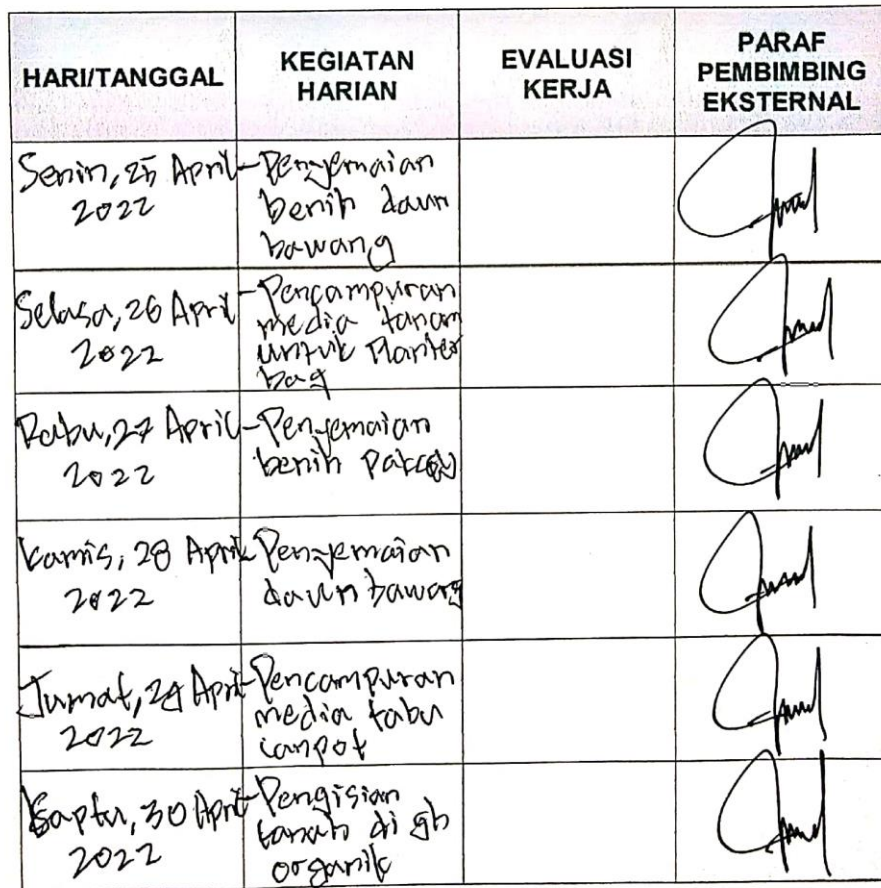 HARI/TANGGAL
KEGIATAN
HARIAN
EVALUASI
KERJA
PARAF
PEMBIMBING
EKSTERNAL
Senin, 25 April
2022
- Penyemaian
benih daun
bawang
Selasa, 26 April
2022
- Pencampuran
media tanam
untuk Planter
bag
Rabu, 27 April
2022
- Penyemaian
benih Pakcoy
Kamis, 28 April
2022
- Penyemaian
daun bawang
Jumat, 29 April
2022
- Pencampuran
media tabu
lampot
Saptu, 30 April
2022
- Pengisian
tanah di gh
organik